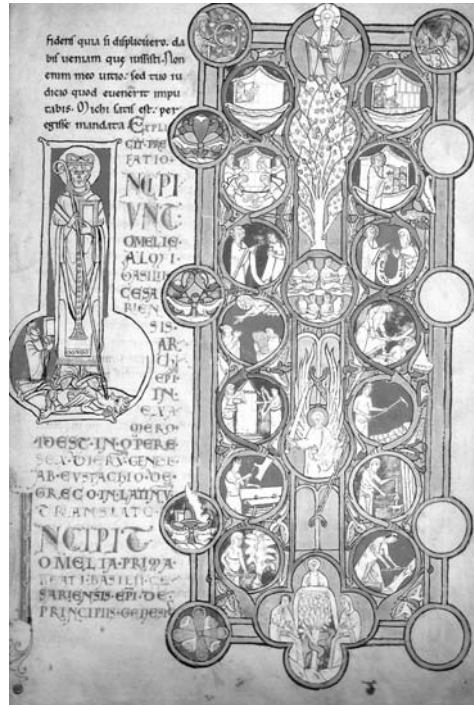 fidens quia si displicuero. da
bis ueniam que iussisti. Non
enim meo uitio. sed tuo iu
dicio quod euenerit impu
tabis. Michi satis est. per
egisse mandata. EXPLI
CIT·PRE
FATIO·
NCIPI
VNT·
OMELIE·
ALMI·
BASILII·
CESA
RIEN
SIS·
AR
CHI
EPI
IN·
EXA
MERN
IDEST·IN·OPERE
SEX·DIERV·GENTE
AB·EVSTACHIO·DE·
GRECO·IN·LATINV
TRANSLATE·
NCIPIT
OMELIA·PRIMA
BEATI·BASILII·CE
SARIENSIS·EPI·DE·
PRINCIPIIS·GENESIS